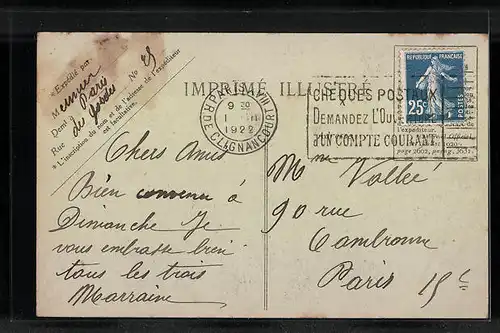 * Expédié par
Meunier
Demt à Paris
Rue de No 25
* L'inscription du nom et de l'adresse de l'expéditeur
est facultative.
IMPRIMÉ ILLUSTRÉ
PARIS XVIII
9 30
1
1922
R. DE CLIGNANCOURT
CHEQUES POSTAUX
DEMANDEZ L'OUV
D'UN COMPTE COURANT
REPUBLIQUE FRANÇAISE
25c
POSTES
l'expéditeur.
Chers Amis
Bien convenu à
Dimanche Je
vous embrasse bien
tous les trois
Marraine
M Vallée
90 rue
Cambronne
Paris 15e